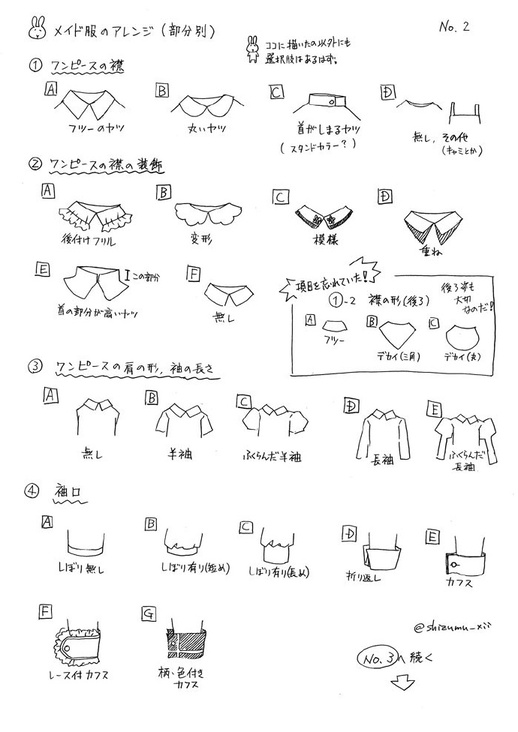 メイド服のアレンジ(部分別)
No.2
ココに描いたの以外にも
選択肢はあるはず。
① ワンピースの襟
A
B
C
D
フツーのヤツ
丸いヤツ
首がしまるヤツ
(スタンドカラー?)
無し、その他
(キャミとか)
② ワンピースの襟の装飾
A
B
C
D
後付けフリル
変形
模様
重ね
E
この部分
F
首の部分が高いヤツ
無し
項目を忘れていた!
①-2 襟の形(後ろ)
後ろ姿も
大切
なのだ!
A
B
C
フツー
デカイ(三角)
デカイ(丸)
③ ワンピースの肩の形、袖の長さ
A
B
C
D
E
無し
半袖
ふくらんだ半袖
長袖
ふくらんだ
長袖
④ 袖口
A
B
C
D
E
しぼり無し
しぼり有り(短め)
しぼり有り(長め)
折り返し
カフス
F
G
レース付カフス
柄・色付き
カフス
@shizumu_xii
No.3へ続く